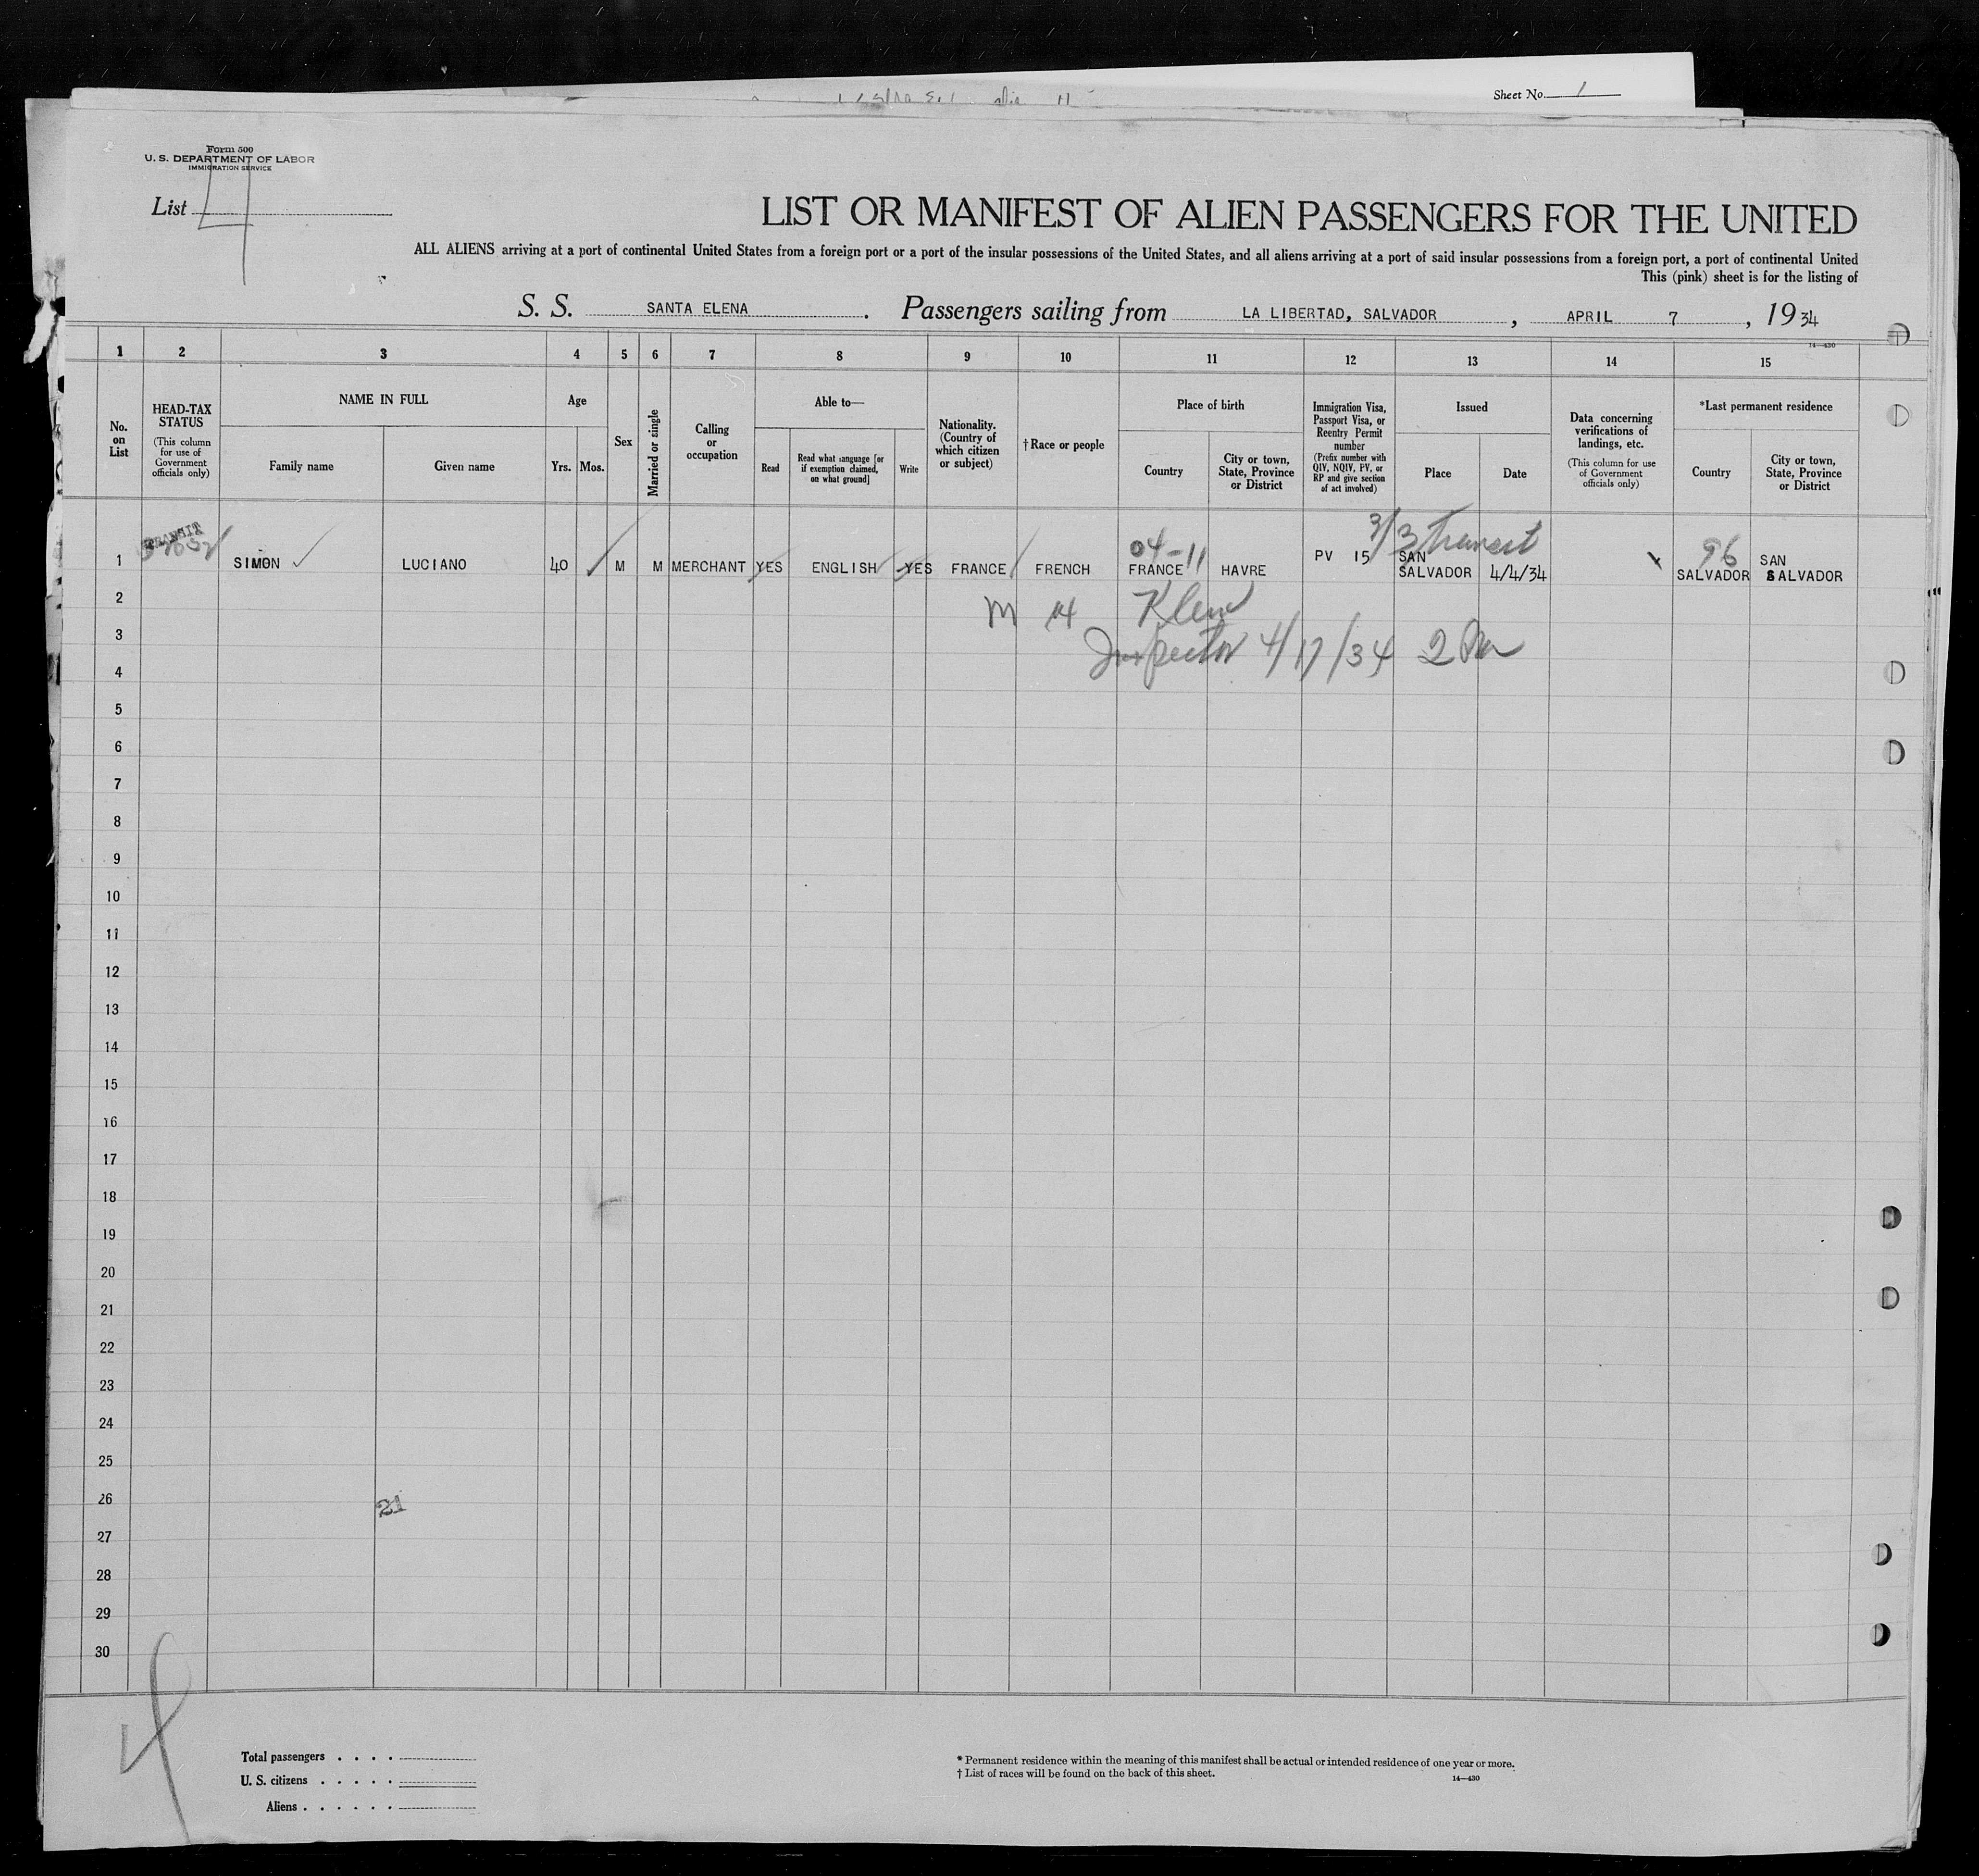 Sheet No. 1
Form 500
U. S. DEPARTMENT OF LABOR
IMMIGRATION SERVICE
List 4
LIST OR MANIFEST OF ALIEN PASSENGERS FOR THE UNITED
ALL ALIENS arriving at a port of continental United States from a foreign port or a port of the insular possessions of the United States, and all aliens arriving at a port of said insular possessions from a foreign port, a port of continental United
This (pink) sheet is for the listing of
S. S. SANTA ELENA. Passengers sailing from LA LIBERTAD, SALVADOR, APRIL 7, 1934
14—430
1 2 3 4 5 6 7 8 9 10 11 12 13 14 15
No. on List
HEAD-TAX STATUS (This column for use of Government officials only)
NAME IN FULL
Family name
Given name
Age
Yrs. Mos.
Sex
Married or single
Calling or occupation
Able to—
Read
Read what language [or if exemption claimed, on what ground]
Write
Nationality. (Country of which citizen or subject)
†Race or people
Place of birth
Country
City or town, State, Province or District
Immigration Visa, Passport Visa, or Reentry Permit number (Prefix number with QIV, NQIV, PV, or RP and give section of act involved)
Issued
Place
Date
Data concerning verifications of landings, etc. (This column for use of Government officials only)
*Last permanent residence
Country
City or town, State, Province or District
TRANSIT
3/3 transit
04-11
96
1 SIMON LUCIANO 40 M M MERCHANT YES ENGLISH YES FRANCE FRENCH FRANCE HAVRE PV 15 SAN SALVADOR 4/4/34 SALVADOR SAN SALVADOR
2
M H Klein
3
Inspector 4/17/34
4
5
6
7
8
9
10
11
12
13
14
15
16
17
18
19
20
21
22
23
24
25
26
21
27
28
29
30
4
Total passengers . . . .
U. S. citizens . . . . .
Aliens . . . . . .
* Permanent residence within the meaning of this manifest shall be actual or intended residence of one year or more.
† List of races will be found on the back of this sheet.
14—430